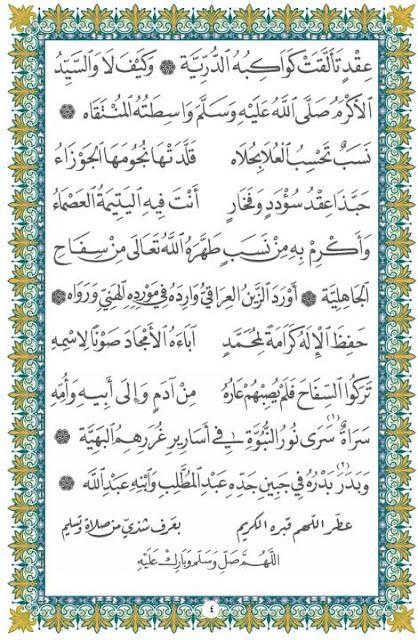 عِقْدٍ تَأَلَّقَتْ كَوَاكِبُهُ الدُّرِّيَّةْ ۞ وَكَيْفَ لَا وَالسَّيِّدُ
الْأَكْرَمُ صَلَّى اللَّهُ عَلَيْهِ وَسَلَّمَ وَاسِطَتُهُ الْمُنْتَقَاه ۞
نَسَبٌ تَحْسِبُ الْعُلَا بِحُلَاه قَلَّدَتْهَا نُجُومَهَا الْجَوْزَاءُ
حَبَّذَا عِقْدُ سُؤْدَدٍ وَفَخَارٍ أَنْتَ فِيهِ الْيَتِيمَةُ الْعَصْمَاءُ
وَأَكْرِمْ بِهِ مِنْ نَسَبٍ طَهَّرَهُ اللَّهُ تَعَالَى مِنْ سِفَاحِ
الْجَاهِلِيَّةْ ۞ أَوْرَدَ الزَّيْنُ الْعِرَاقِيُّ وَارِدَهُ فِي مَوْرِدِهِ الْهَنِيِّ وَرَوَاه ۞
حَفِظَ الْإِلَهُ كَرَامَةً لِمُحَمَّدٍ آبَاءَهُ الْأَمْجَادَ صَوْنًا لِاسْمِهِ
تَرَكُوا السِّفَاحَ فَلَمْ يُصِبْهُمْ عَارُهُ مِنْ آدَمٍ وَإِلَى أَبِيهِ وَأُمِّهِ
سَرَاةٌ سَرَى نُورُ النُّبُوَّةِ فِي أَسَارِيرِ غُرَرِهِمُ الْبَهِيَّةْ ۞
وَبَدَرَ بَدْرُهُ فِي جَبِينِ جَدِّهِ عَبْدِ الْمُطَّلِبِ وَابْنِهِ عَبْدِ اللَّه ۞
عطّر اللّهم قبره الكريم بعرف شذيّ من صلاة وتسليم
اللَّهُمَّ صَلِّ وَسَلِّمْ وَبَارِكْ عَلَيْهِ
٤